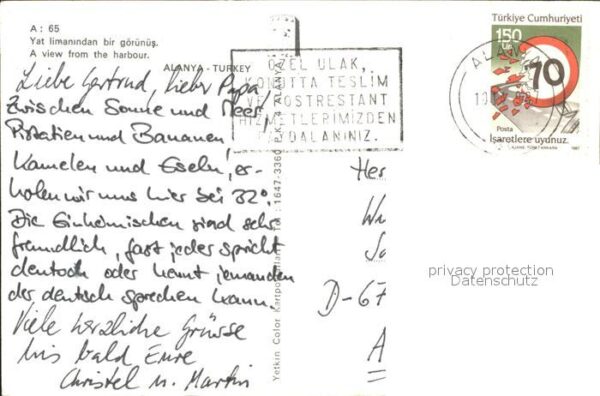 A: 65
Yat limanından bir görünüş.
A view from the harbour.
ALANYA - TURKEY
Liebe Gertrud, lieber Papa
Zwischen Sonne und Meer
Pistatien und Bananen
Kamelen und Eseln, er-
holen wir uns hier bei 32°.
Die Einheimischen sind sehr
freundlich, fast jeder spricht
deutsch oder kennt jemanden
der deutsch sprechen kann.
Viele herzliche Grüsse
bis bald Eure
Christel u. Martin
Yetkin Color Kartpostalları Tel: 1647-3360 P.K. ALANYA
ÖZEL ULAK,
KONUTTA TESLİM
VE POSTRESTANT
HİZMETLERİMİZDEN
FAYDALANINIZ.
Türkiye Cumhuriyeti
150
LİRA
70
Posta
İşaretlere uyunuz.
1987
ALAN
Her
D-67
privacy protection
Datenschutz